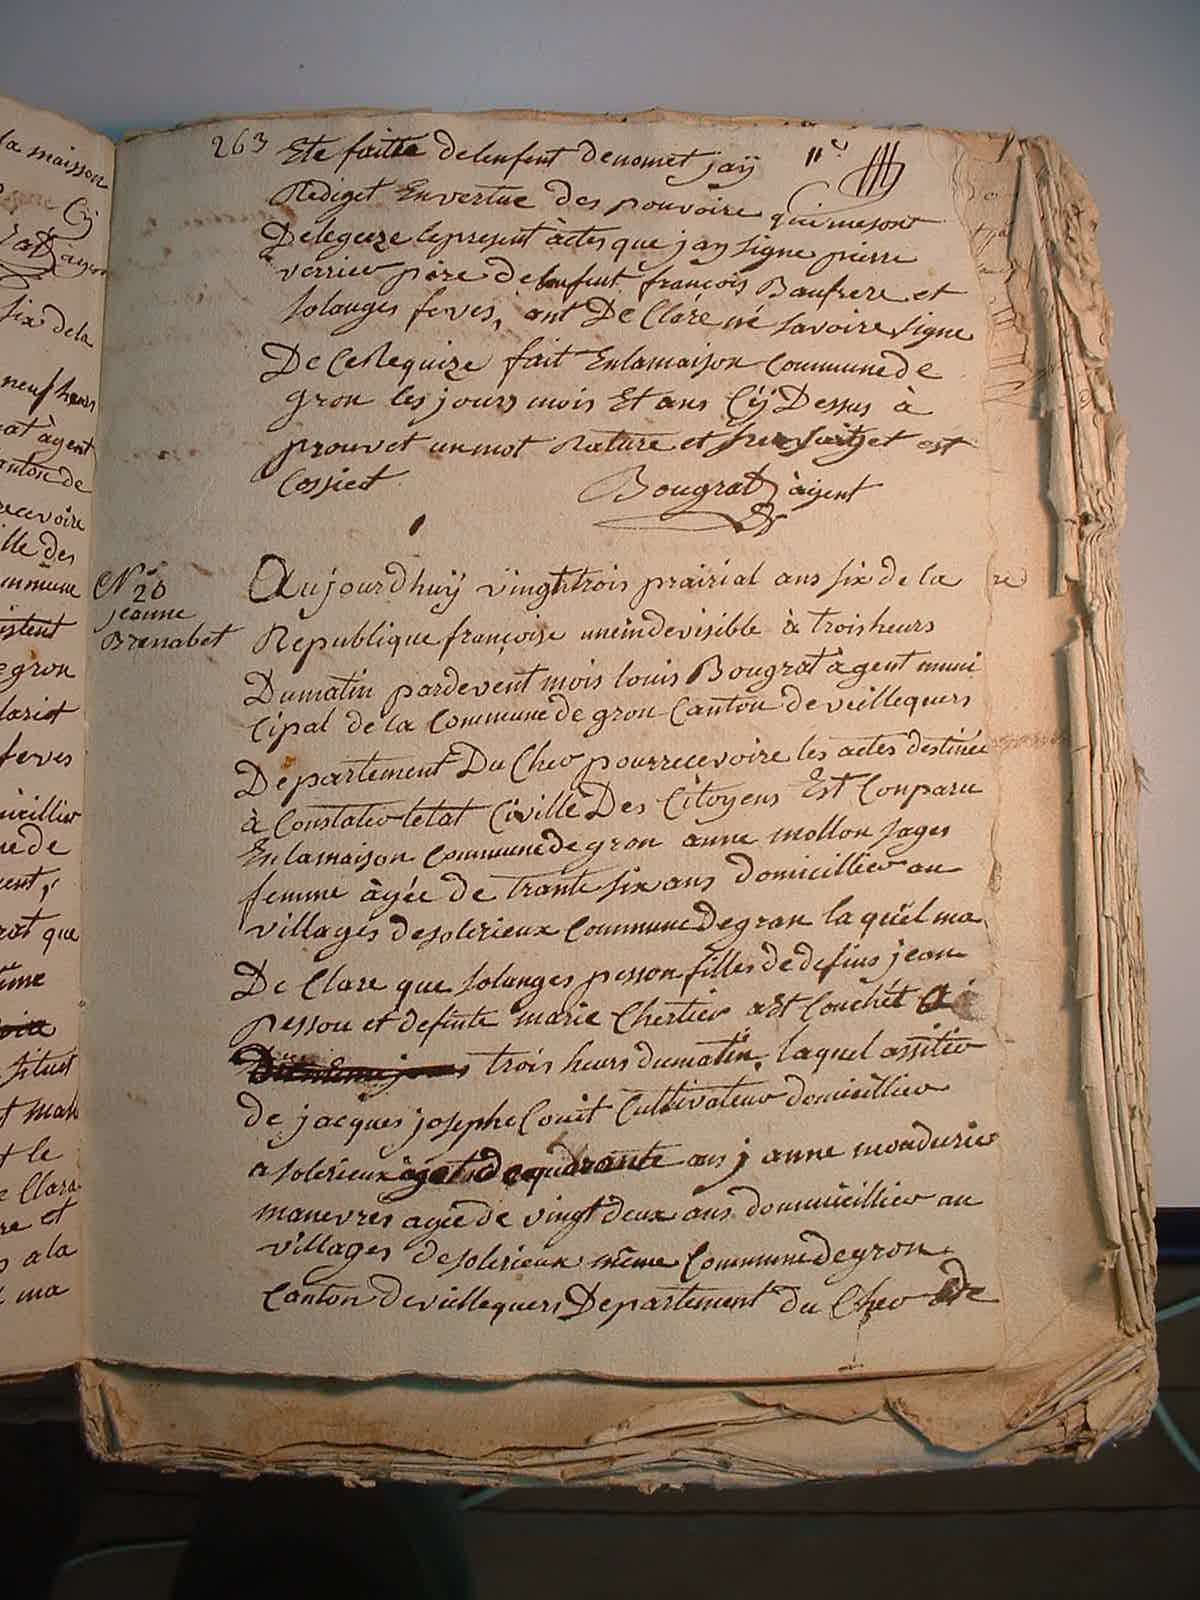 263 Ete faitte delenfent denomet jaÿ
Rediget Envertue des pouvoire quimesont
Delegueze lepresent àctes que jay signe pierre
verrier père delenfent françois Baufrere et
solanges feves, ont De Claré né savoire signe
De CeRequize fait Enlamaison Communede
gron les jours mois Et ans Cÿ Dessus à
prouvet unmot Rature et est
Bougrat àgent
N 20
jeanne
Brenabet
Aujourdhuÿ vingttrois prairial ans six de la
Republique françoise uneindevisible à troisheurs
Dumatin pardevent mois louis Bougrat àgent muni
Cipal de la Commune de gron Canton de veillequers
Departement Du Cher pourrecevoire les actes destinée
à Constater letat Civille Des Citoyens Est Conparu
Enlamaison Communedegron anne mollon sages
femme àgée de trante six ans domicillier au
villages desolerieux Commune Degron la quel ma
De Clare que solanges pesson filles de defius jean
pesson et definte marie Chertier est Couchét
trois heurs dumatin, laquel assitier
de jacques josephe Couet Cultivateur domicillier
a solerieux àget de quarante ans j anne mondurier
manevres agée de vingt deux ans domicillier au
villages desolerieux même Commune degron
Canton deveillequers Departement du Cher
la maisson
Cÿ
six dela
neuf heurs
àgent
Canton de
recevoire
ille des
ommune
istent
egron
feves
ede
rat que
même
t le
e Clara
re et
a la
ma